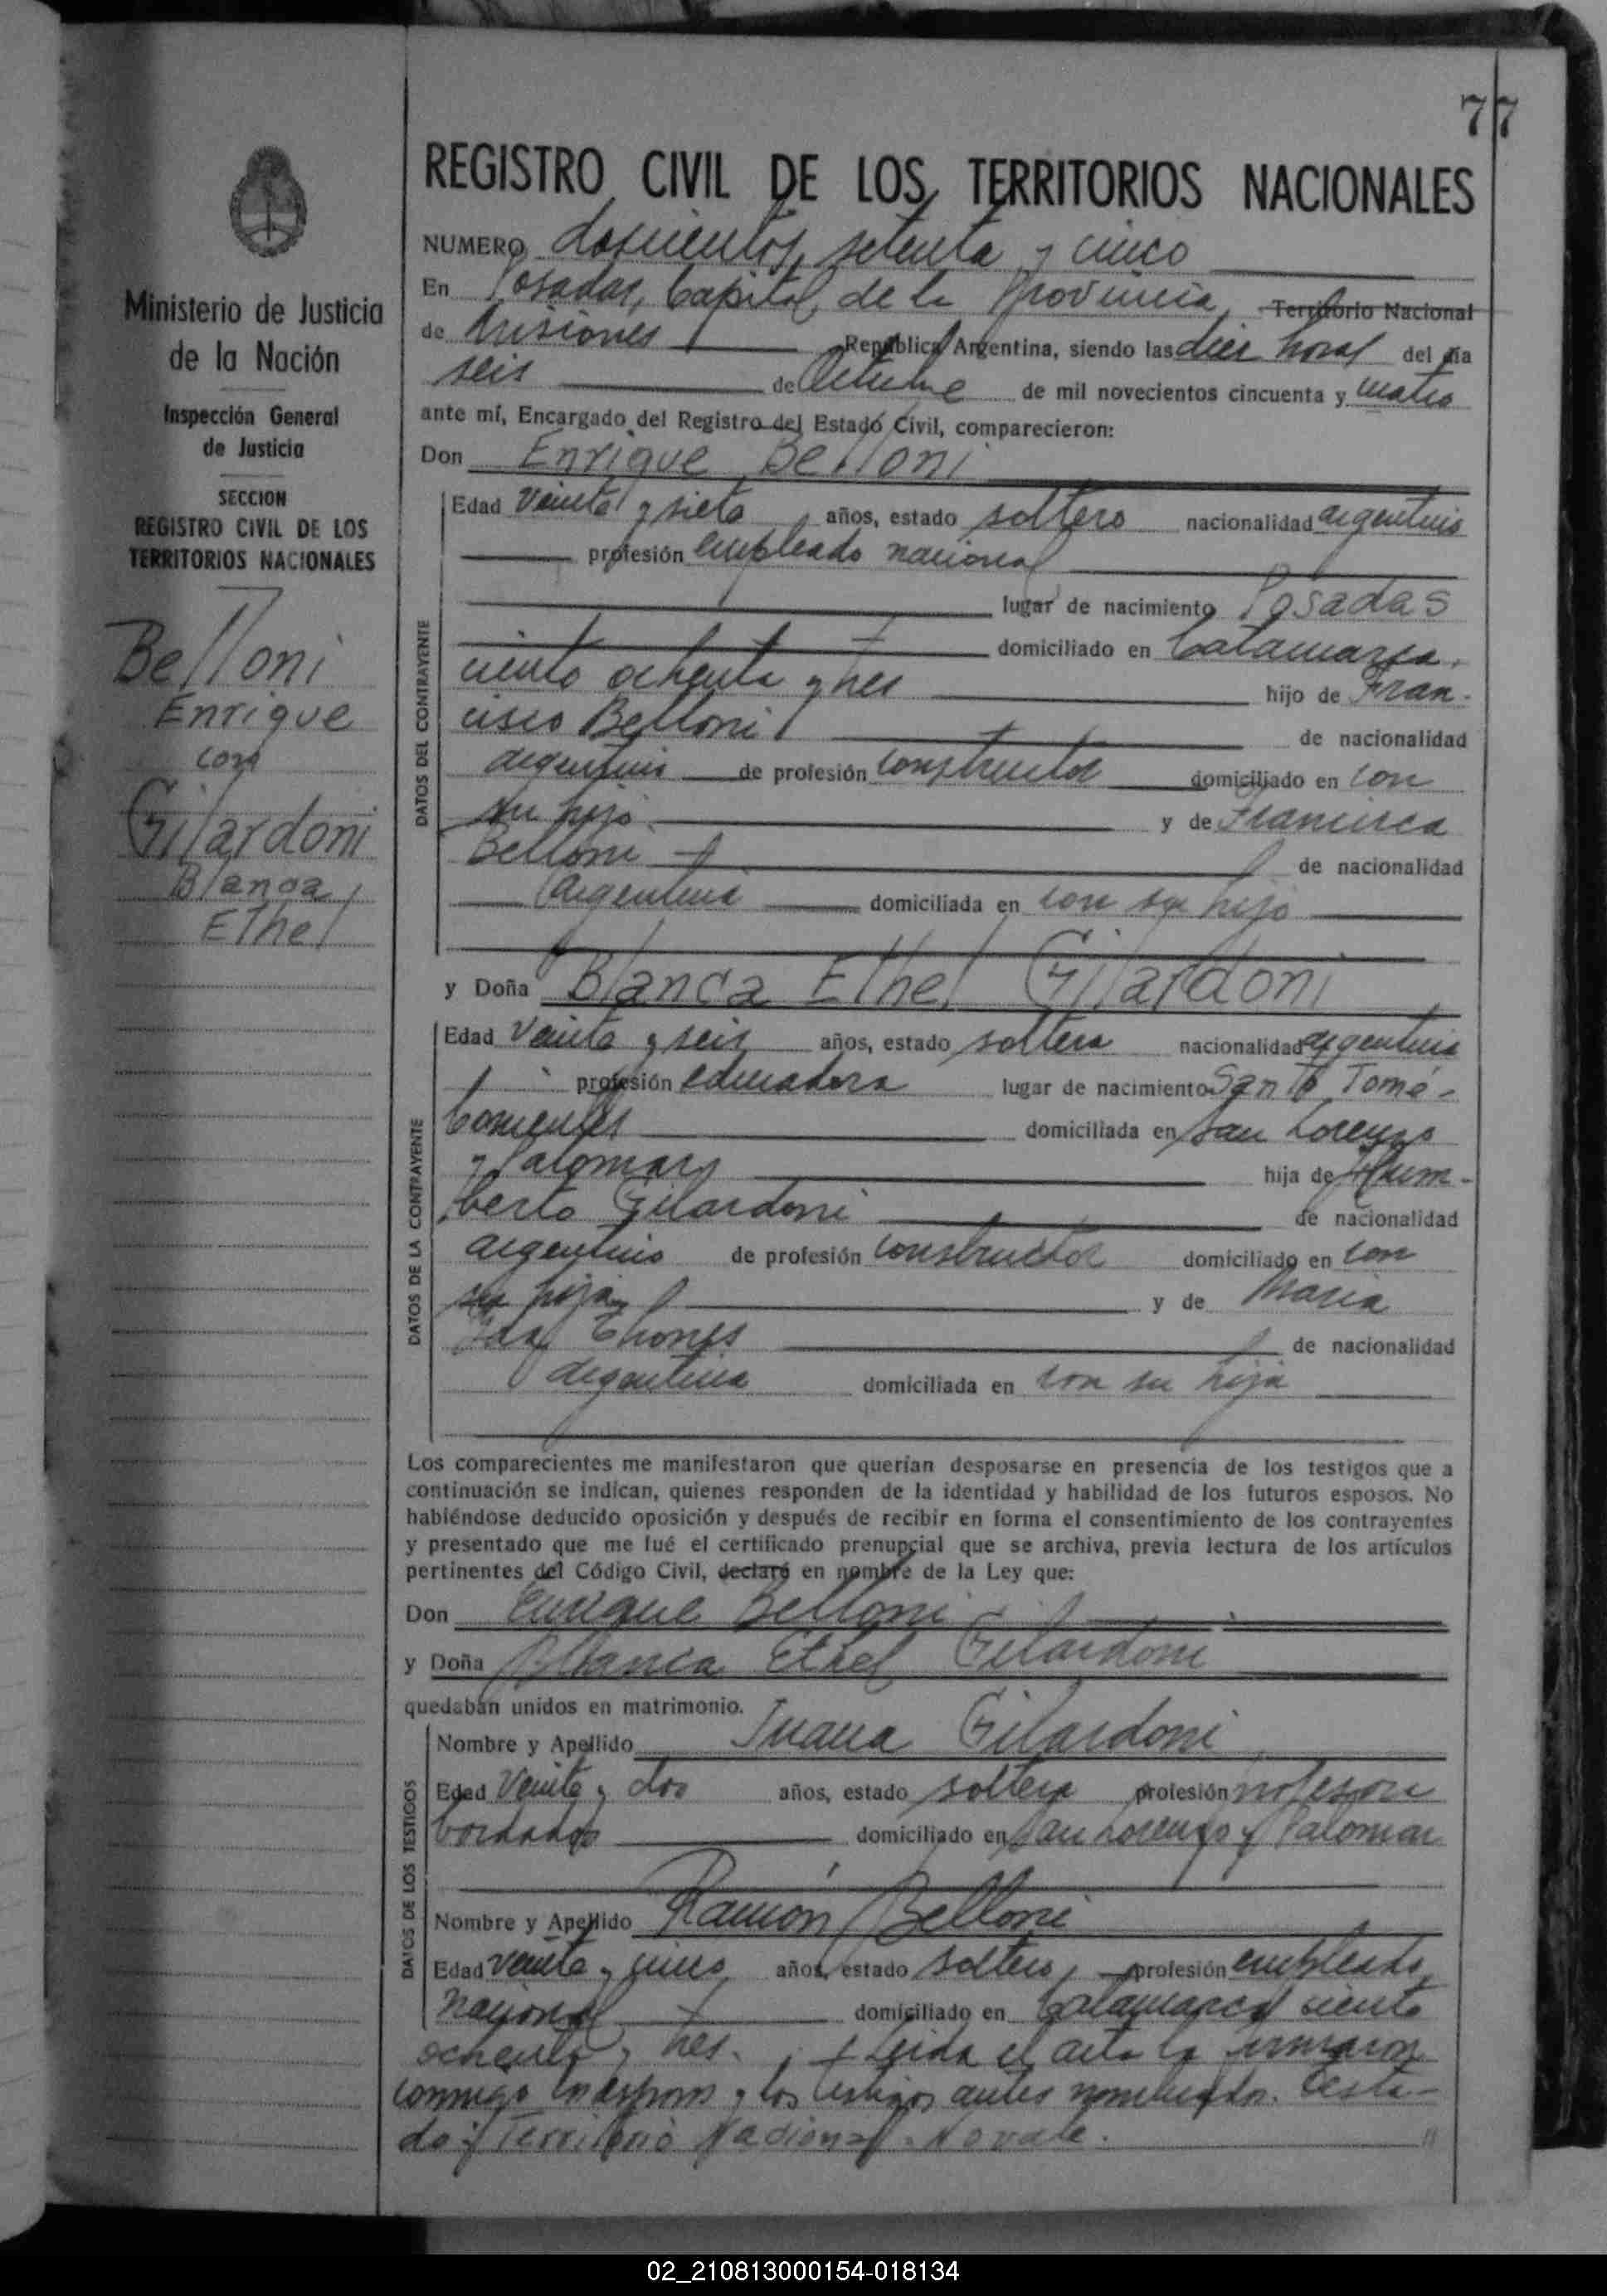 77
REGISTRO CIVIL DE LOS TERRITORIOS NACIONALES
Ministerio de Justicia
de la Nación
Inspección General
de Justicia
SECCION
REGISTRO CIVIL DE LOS
TERRITORIOS NACIONALES
Belloni
Enrique
con
Gilardoni
Blanca
Ethel
NUMERO doscientos setenta y cinco
En Posadas, Capital de la Provincia, Territorio Nacional
de Misiones República Argentina, siendo las diez horas del día
seis de Octubre de mil novecientos cincuenta y cuatro
ante mí, Encargado del Registro del Estado Civil, comparecieron:
Don Enrique Belloni
DATOS DEL CONTRAYENTE
Edad Veinte y siete años, estado soltero nacionalidad argentino
profesión empleado nacional
lugar de nacimiento Posadas
domiciliado en Catamarca
ciento ochenta y tres hijo de Fran-
cisco Belloni de nacionalidad
argentino de profesión constructor domiciliado en con
su hijo y de Francisca
Belloni de nacionalidad
argentina domiciliada en con su hijo
y Doña Blanca Ethel Gilardoni
DATOS DE LA CONTRAYENTE
Edad Veinte y seis años, estado soltera nacionalidad argentina
profesión educadora lugar de nacimiento Santo Tomé-
Corrientes domiciliada en San Lorenzo
y Palomar hija de Hum-
berto Gilardoni de nacionalidad
argentino de profesión constructor domiciliado en con
su hija y de Maria
Thones de nacionalidad
argentina domiciliada en con su hija
Los comparecientes me manifestaron que querían desposarse en presencia de los testigos que a
continuación se indican, quienes responden de la identidad y habilidad de los futuros esposos. No
habiéndose deducido oposición y después de recibir en forma el consentimiento de los contrayentes
y presentado que me fué el certificado prenupcial que se archiva, previa lectura de los artículos
pertinentes del Código Civil, declaré en nombre de la Ley que:
Don Enrique Belloni
y Doña Blanca Ethel Gilardoni
quedaban unidos en matrimonio.
DATOS DE LOS TESTIGOS
Nombre y Apellido Juana Gilardoni
Edad Veinte y dos años, estado soltera profesión profesora
bordado domiciliado en San Lorenzo y Palomar
Nombre y Apellido Ramón Belloni
Edad veinte y cinco años, estado soltero profesión empleado
nacional domiciliado en Catamarca ciento
ochenta y tres. Leida el acta la firmaron
conmigo los esposos y los testigos antes nombrados. Testa-
do: Territorio Nacional. No vale.
02_210813000154-018134